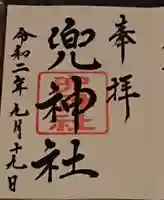 奉拝
兜神社
令和二年九月十九日